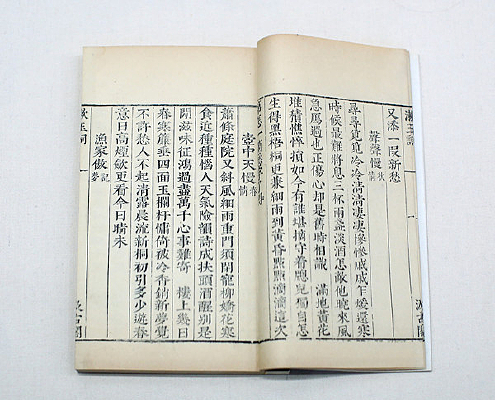 漱玉詞
汲古閣
又添一叚新愁
聲聲慢 秋情
尋尋覓覓冷冷清清悽悽慘慘戚戚乍煖還寒
時候最難將息三杯兩盞淡酒怎敵他曉來風
急鴈過也正傷心却是舊時相識 滿地黃花
堆積憔悴損如今有誰堪摘守着窻兒獨自怎
生得黑梧桐更兼細雨到黃昏點點滴滴這次
壺中天慢 春情
蕭條庭院又斜風細雨重門須閉寵柳嬌花寒
食近種種惱人天氣險韻詩成扶頭酒醒別是
閒滋味征鴻過盡萬千心事難寄 樓上幾日
春寒簾垂四面玉欄杆慵倚被冷香銷新夢覺
不許愁人不起清露晨流新桐初引多少遊春
意日高煙歛更看今日晴未
漁家傲 記夢
漱玉詞
汲古閣